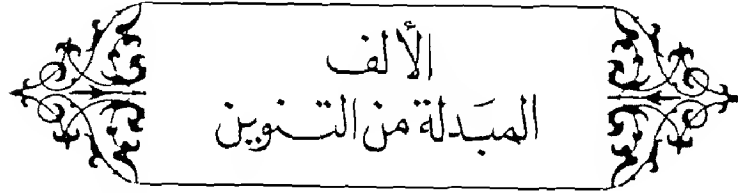 الألف
المبَدلة من التنوين